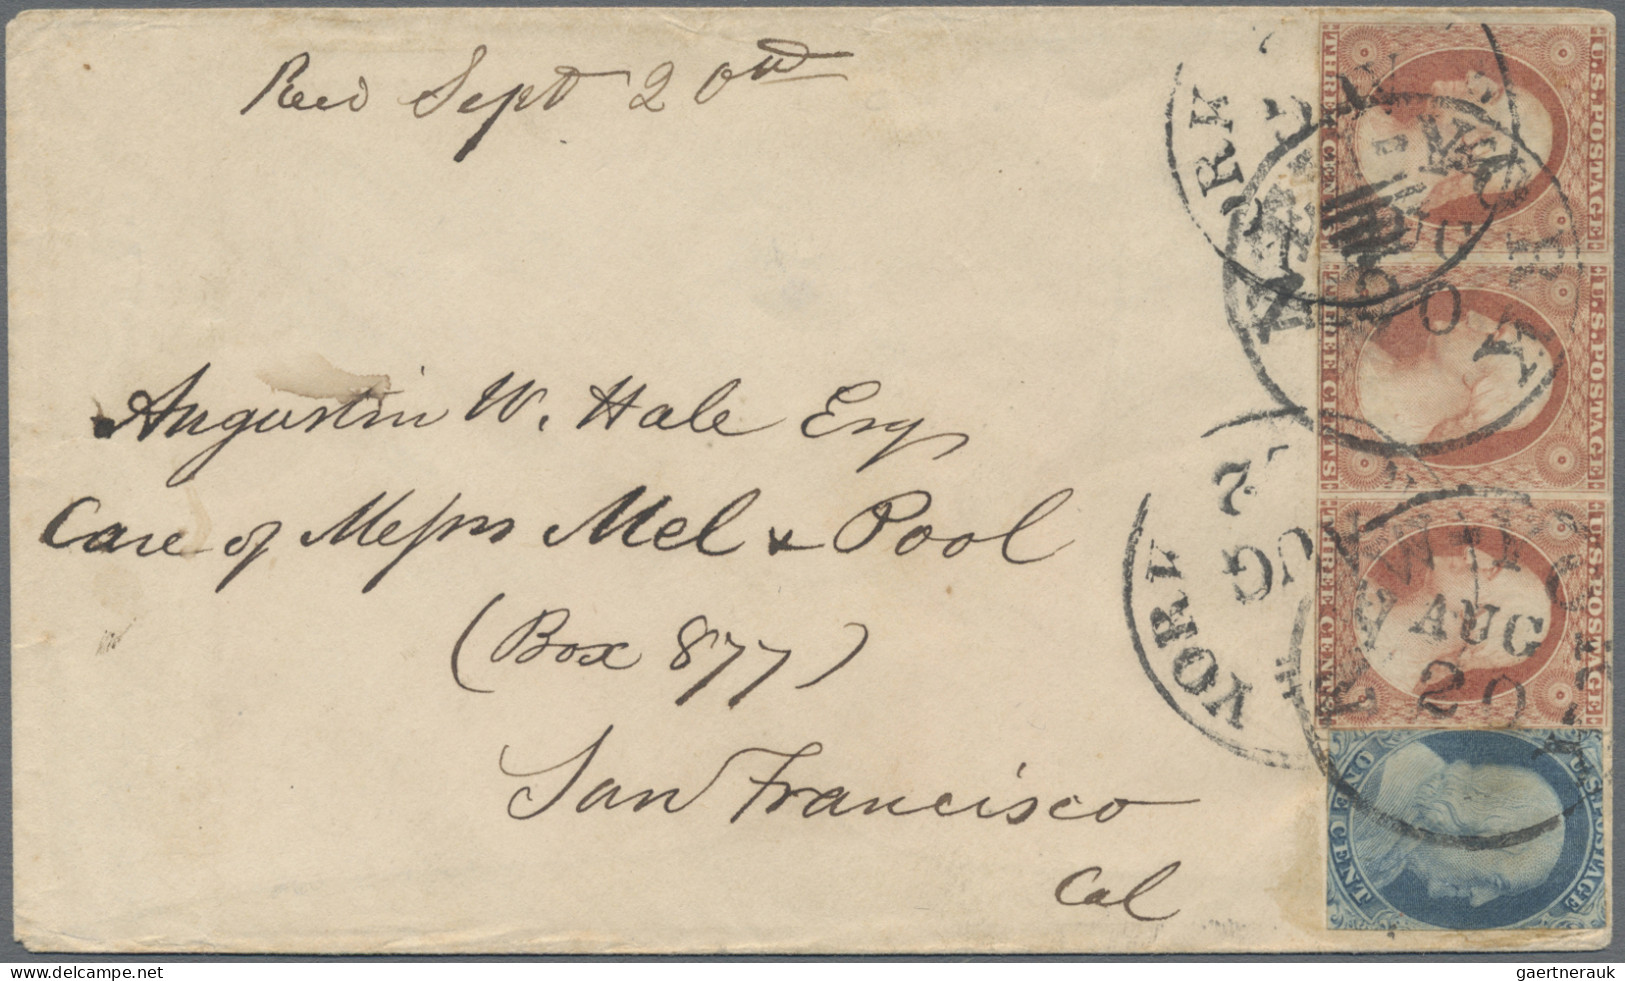 Recd Sept 20th
Augustin W. Hale Esq
Care of Messrs Mel & Pool
(Box 877)
San Francisco
Cal
U.S. POSTAGE
THREE CENTS
U.S. POSTAGE
THREE CENTS
U.S. POSTAGE
THREE CENTS
U.S. POSTAGE
ONE CENT
NEW-YORK
AUG
20
NEW-YORK
AUG
20
YORK
AUG
gaertnerauk